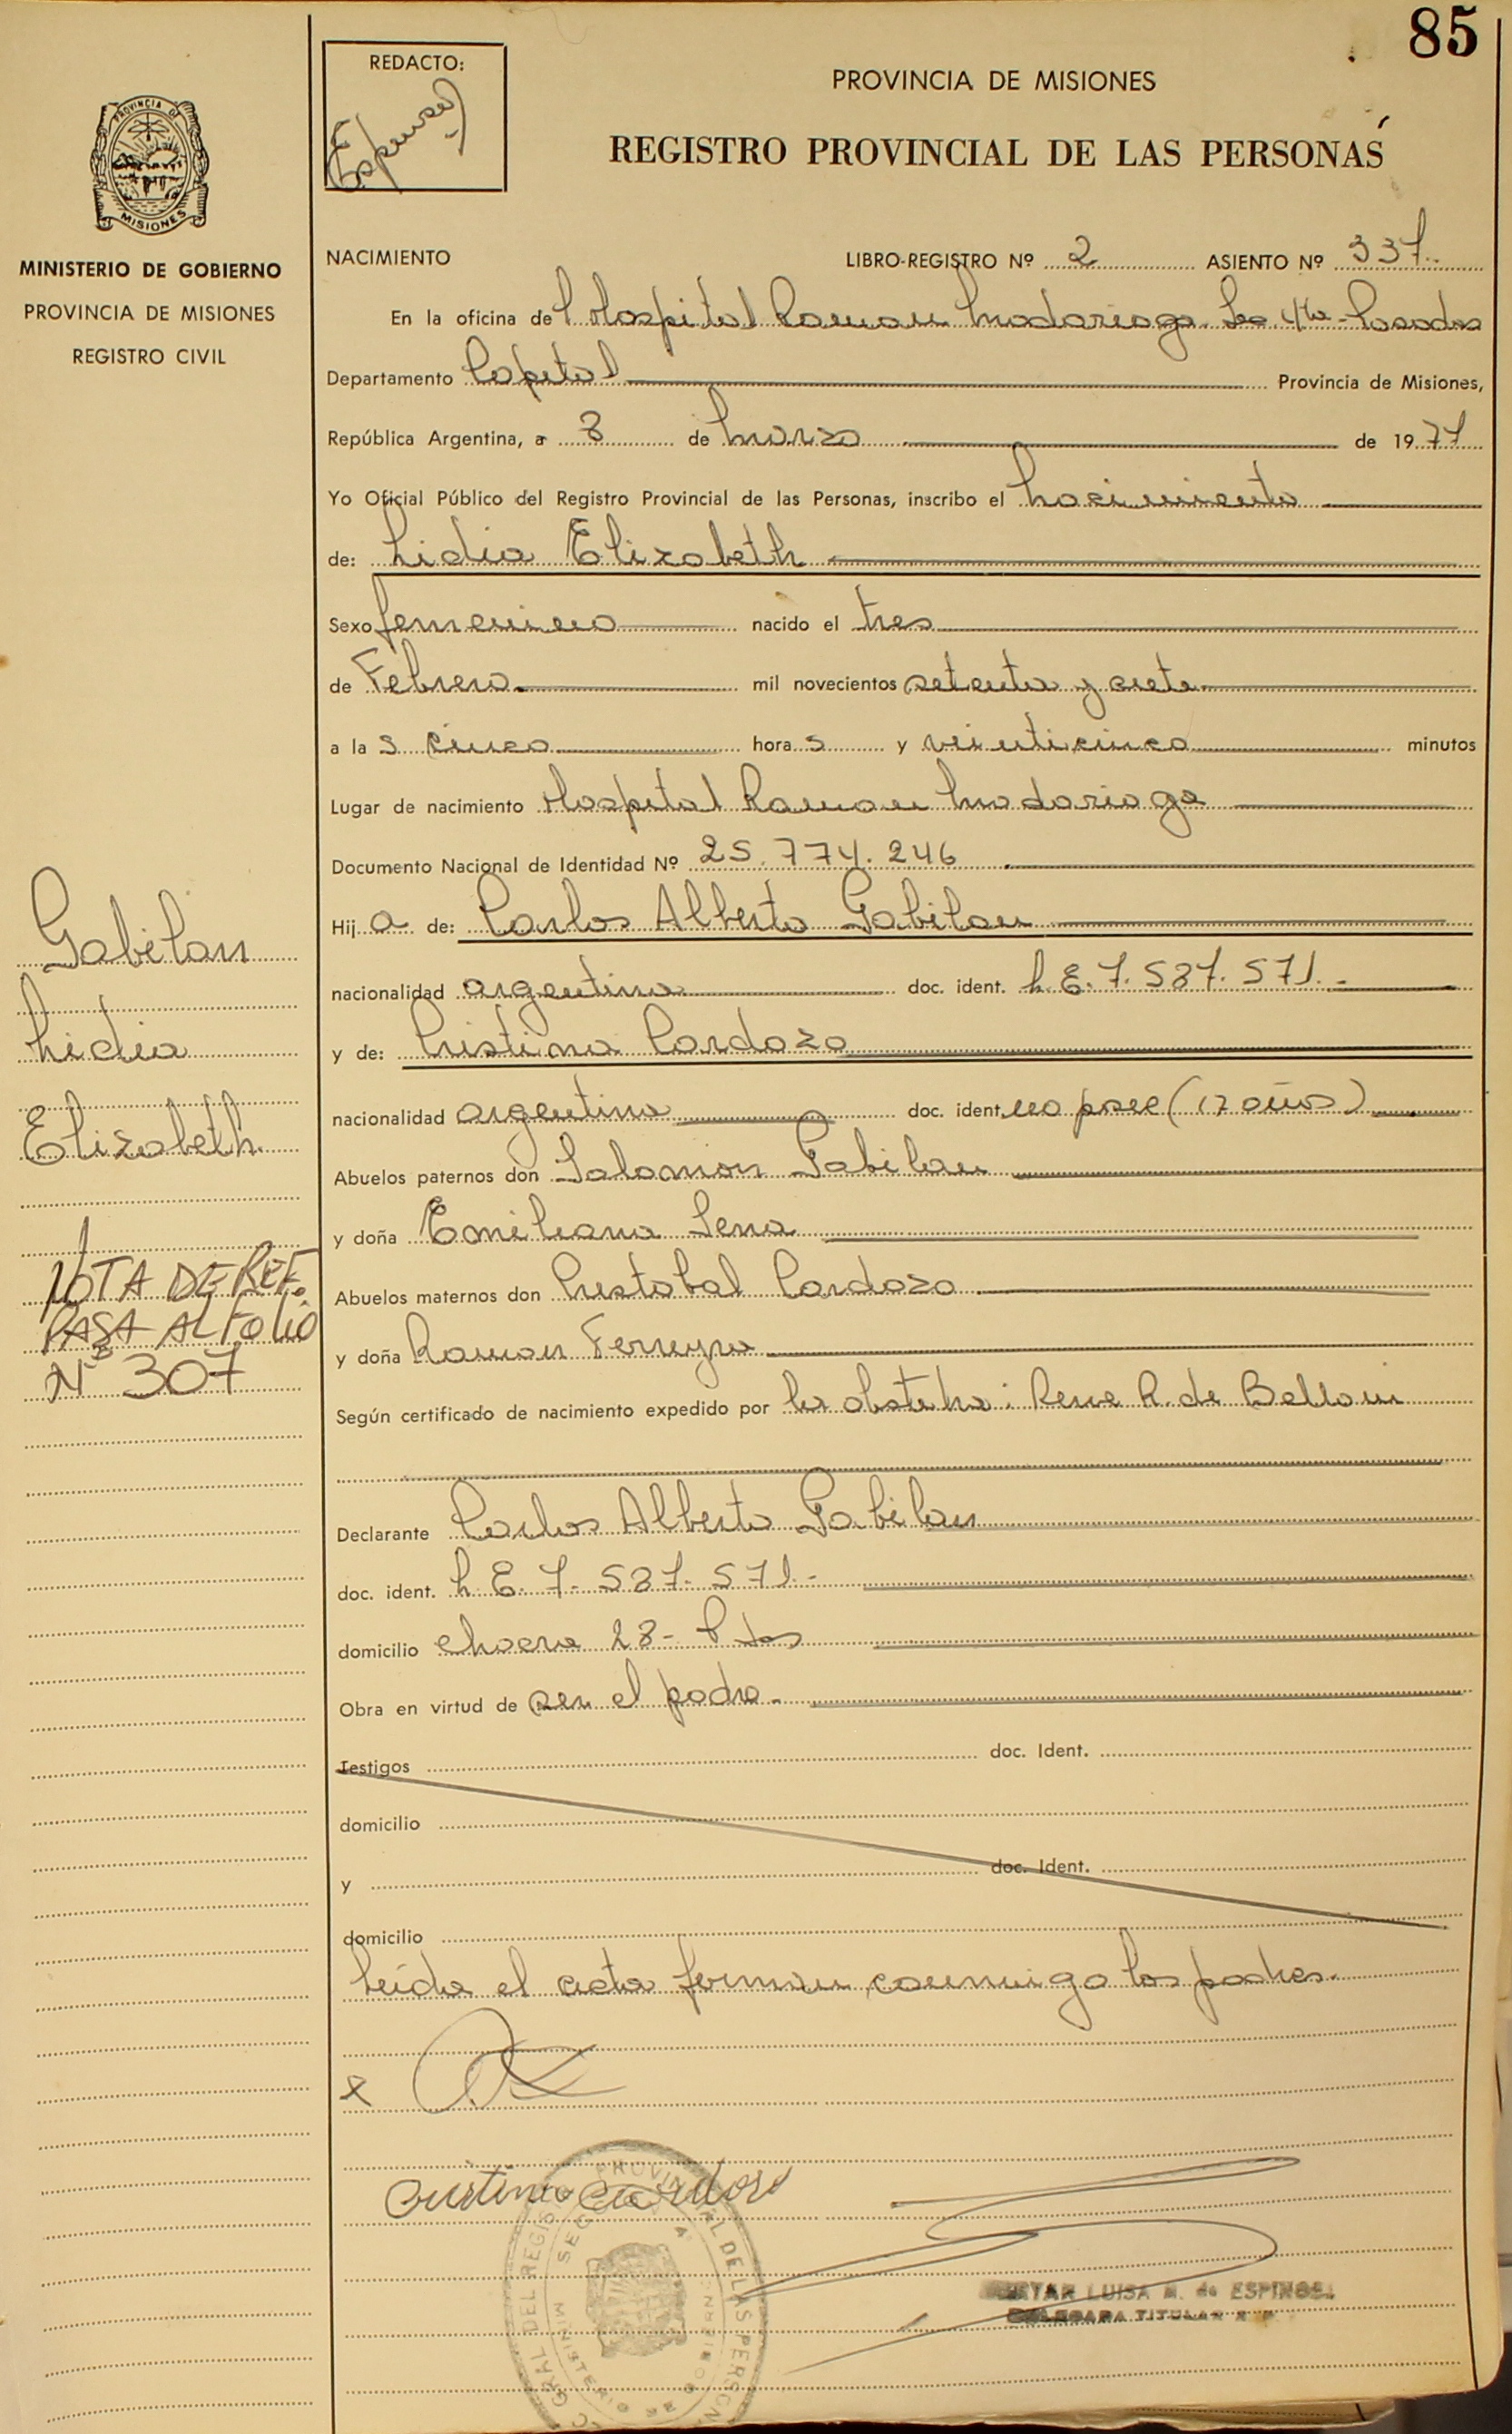 85
REDACTO:
PROVINCIA DE MISIONES
REGISTRO PROVINCIAL DE LAS PERSONAS
PROVINCIA DE
MISIONES
MINISTERIO DE GOBIERNO
PROVINCIA DE MISIONES
REGISTRO CIVIL
NACIMIENTO LIBRO-REGISTRO Nº 2 ASIENTO Nº 337
En la oficina del Hospital Ramon Madariaga Sec 4ta Posadas
Departamento Capital Provincia de Misiones,
República Argentina, a 8 de Marzo de 1977
Yo Oficial Público del Registro Provincial de las Personas, inscribo el Nacimiento
de: Lidia Elizabeth
Sexo femenino nacido el tres
de Febrero mil novecientos setenta y siete
a las cinco horas y veinticinco minutos
Lugar de nacimiento Hospital Ramon Madariaga
Documento Nacional de Identidad Nº 25.774.246
Hija de: Carlos Alberto Gabilan
nacionalidad argentina doc. ident. L.E. 7.587.571.-
y de: Cristina Cardozo
nacionalidad argentina doc. ident. no posee (17 años)
Abuelos paternos don Salamon Gabilan
y doña Emiliana Sena
Abuelos maternos don Cristobal Cardozo
y doña Ramon Ferreyra
Según certificado de nacimiento expedido por la obstetra: Rene R. de Belloni
Declarante Carlos Alberto Gabilan
doc. ident. L.E. 7.587.571.-
domicilio chacra 28- Pdas
Obra en virtud de ser el padre.
Testigos doc. Ident.
domicilio
y doc. Ident.
domicilio
Leida el acta firman conmigo los padres.
x
Cristina Cardozo
LUISA M. de ESPINOSA
TITULAR
Gabilan
Lidia
Elizabeth.
NOTA DE REF.
PASA AL FOLIO
Nº 307